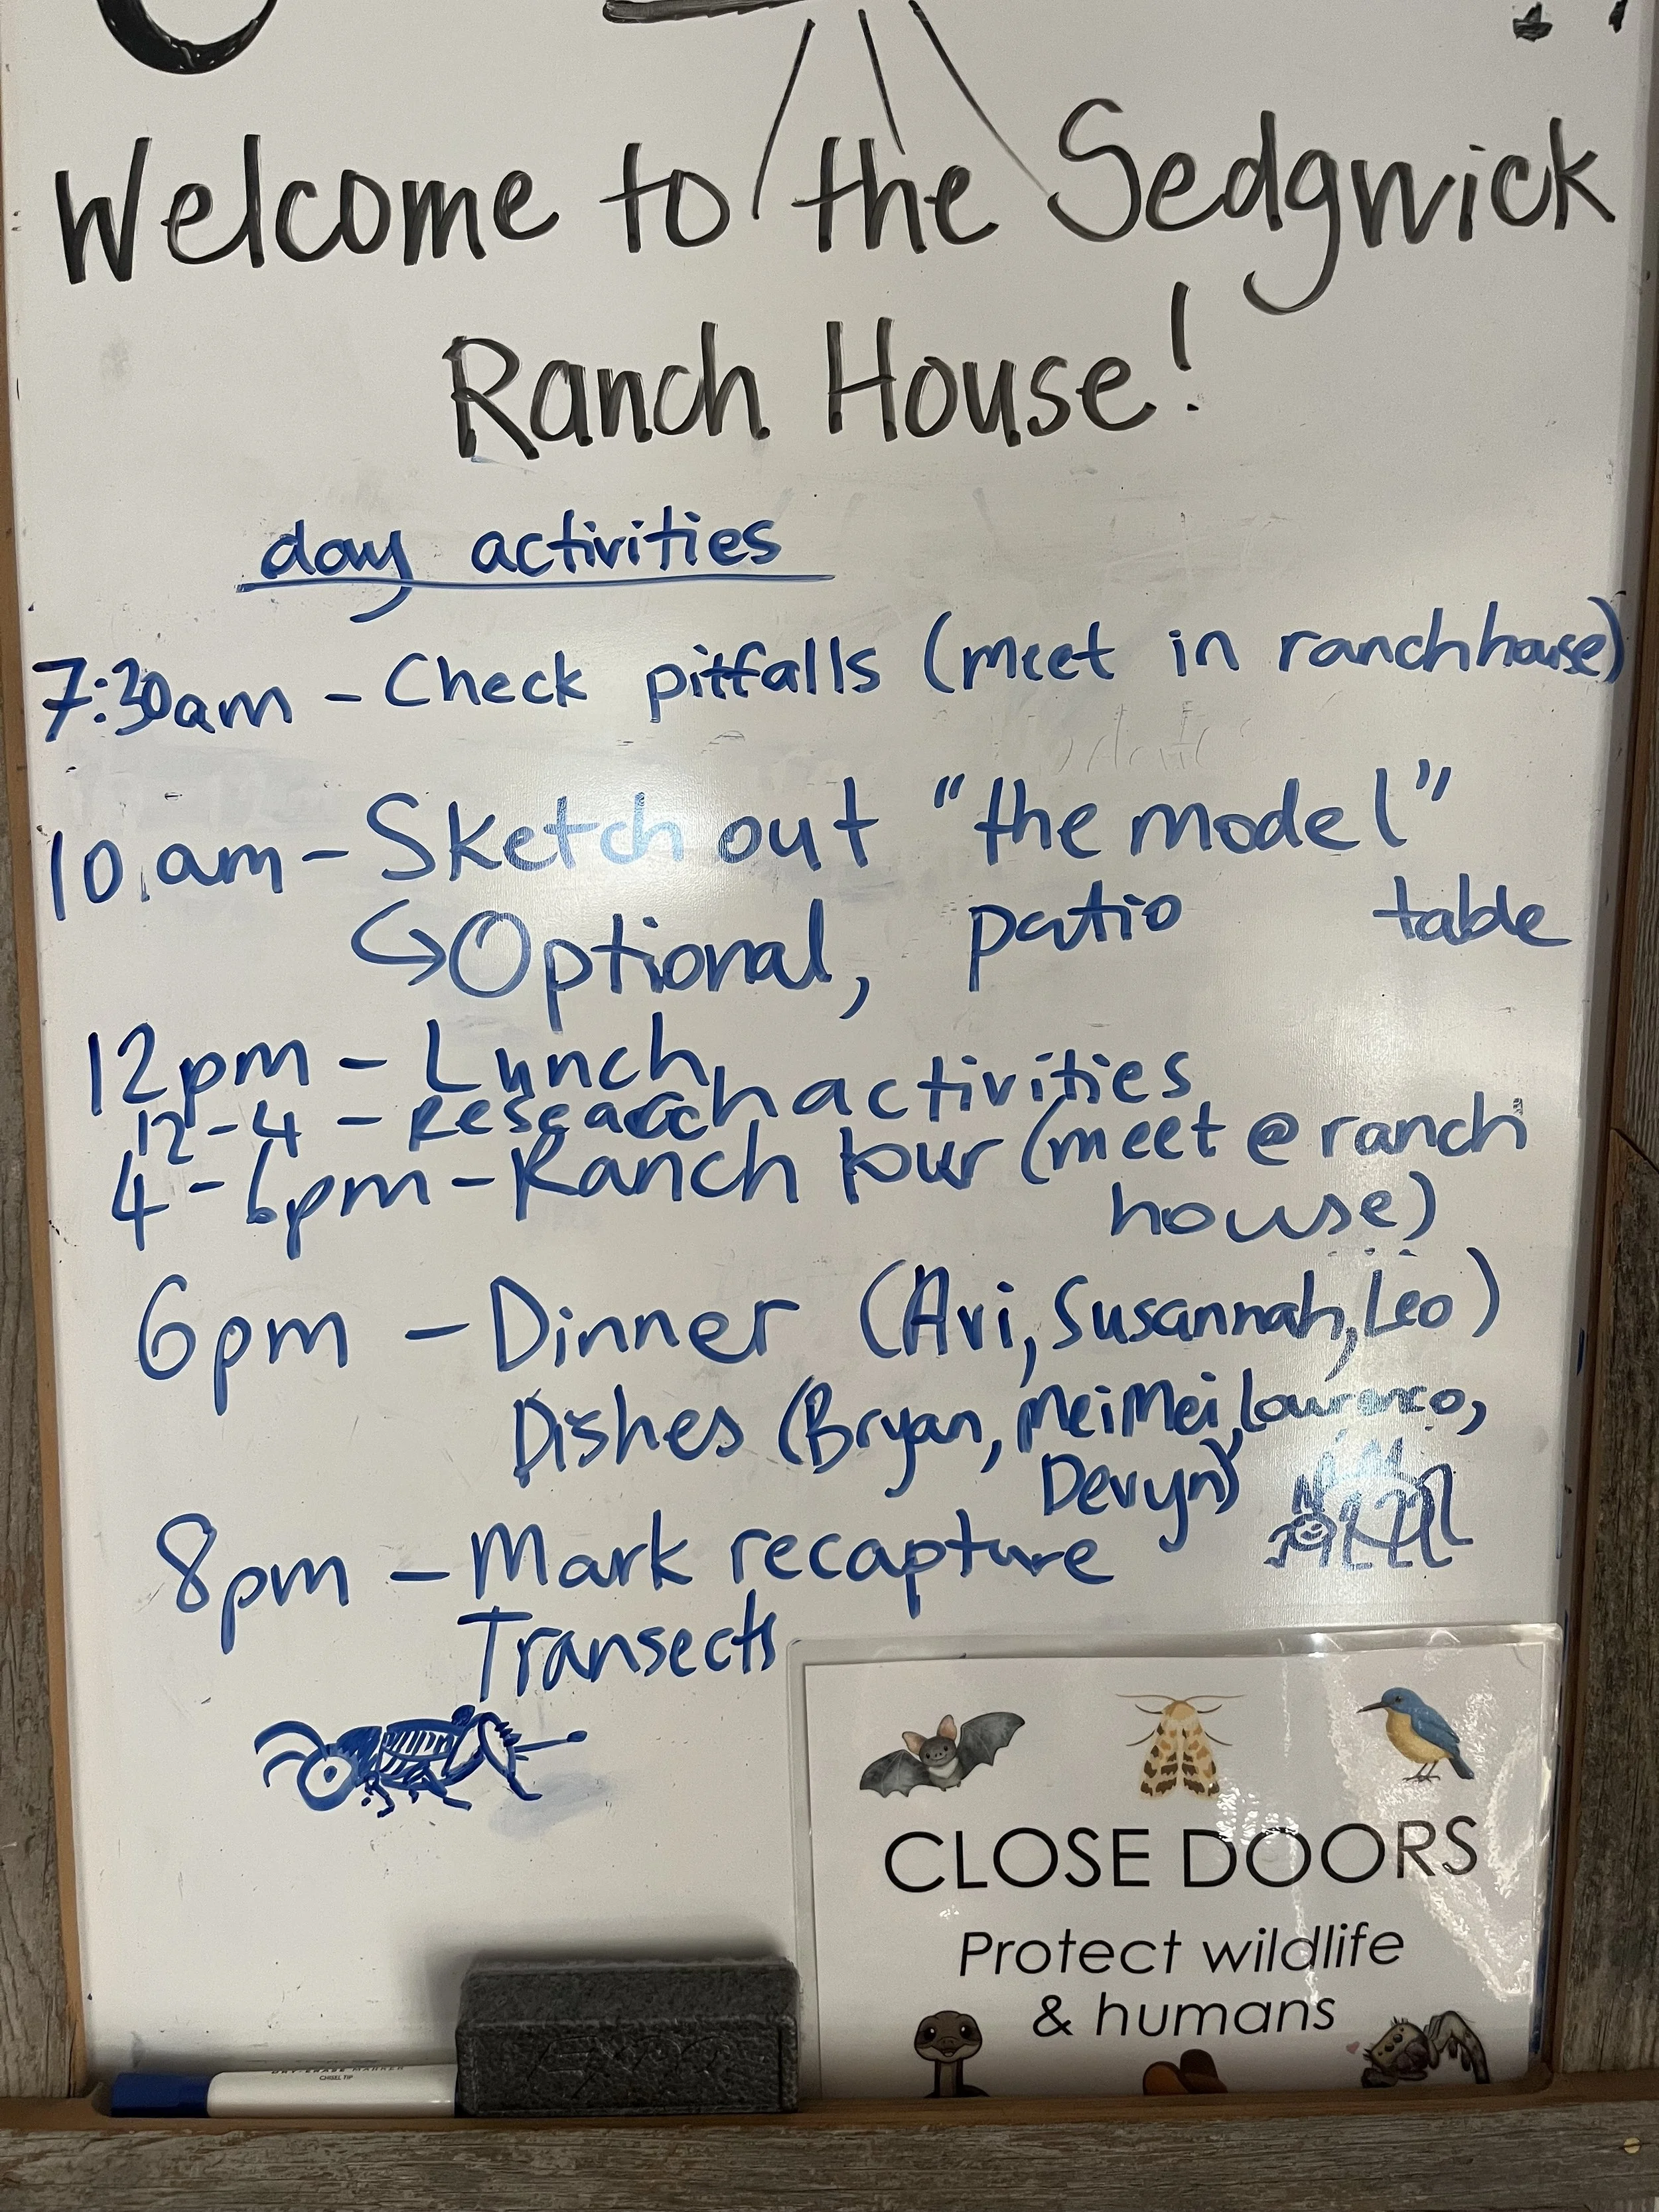 Welcome to the Sedgwick
Ranch House!
day activities
7:30am - Check pitfalls (meet in ranchhouse)
10 am - Sketch out "the model"
↪ Optional, patio table
12pm - Lunch
12-4 - Research activities
4-6pm - Ranch tour (meet @ ranch
house)
6pm - Dinner (Avi, Susannah, Leo)
Dishes (Bryan, MeiMei, Lourenco,
Devyn)
8pm - Mark recapture
Transects
CLOSE DOORS
Protect wildlife
& humans
DRY ERASE MARKER
CHISEL TIP